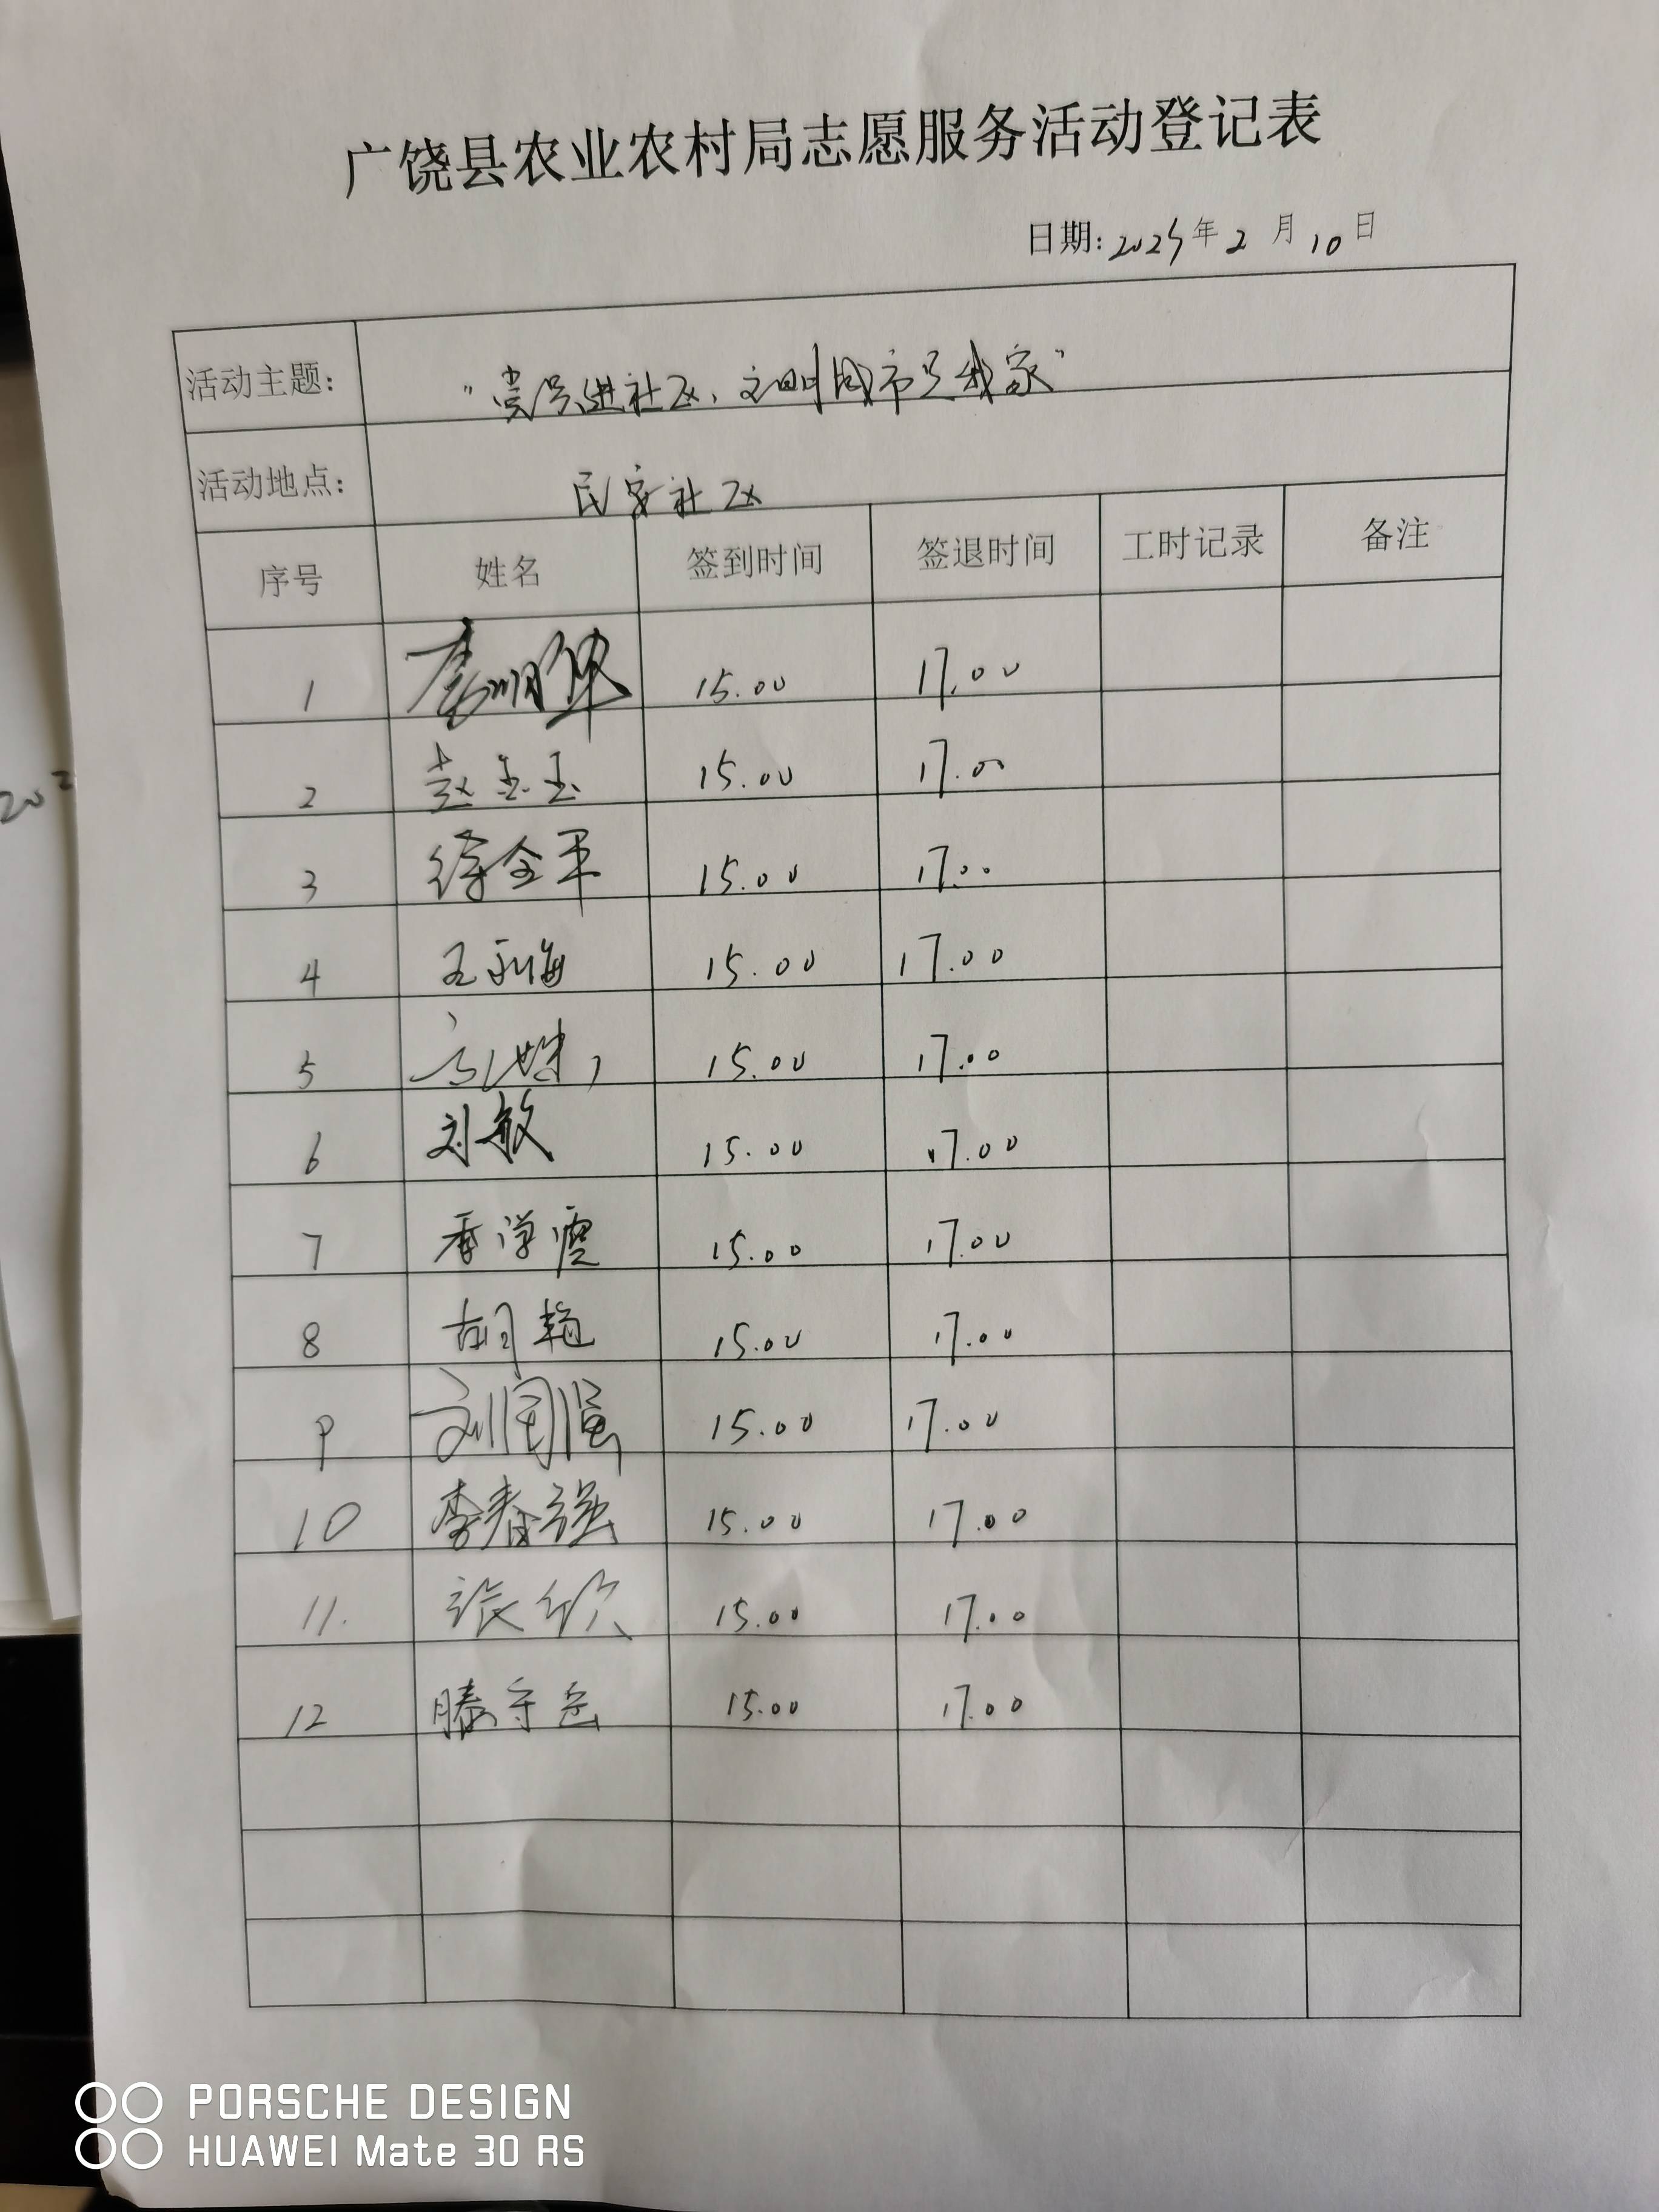 广饶县农业农村局志愿服务活动登记表
日期：2025年2月10日
活动主题： “党员进社区，文明城市是我家”
活动地点： 民安社区
序号 姓名 签到时间 签退时间 工时记录 备注
1 15.00 17.00
2 赵玉玉 15.00 17.00
3 徐全平 15.00 17.00
4 王永海 15.00 17.00
5 15.00 17.00
6 刘敏 15.00 17.00
7 15.00 17.00
8 胡艳 15.00 17.00
9 刘国强 15.00 17.00
10 李春强 15.00 17.00
11. 张欣 15.00 17.00
12 滕守岳 15.00 17.00
202
PORSCHE DESIGN
HUAWEI Mate 30 RS